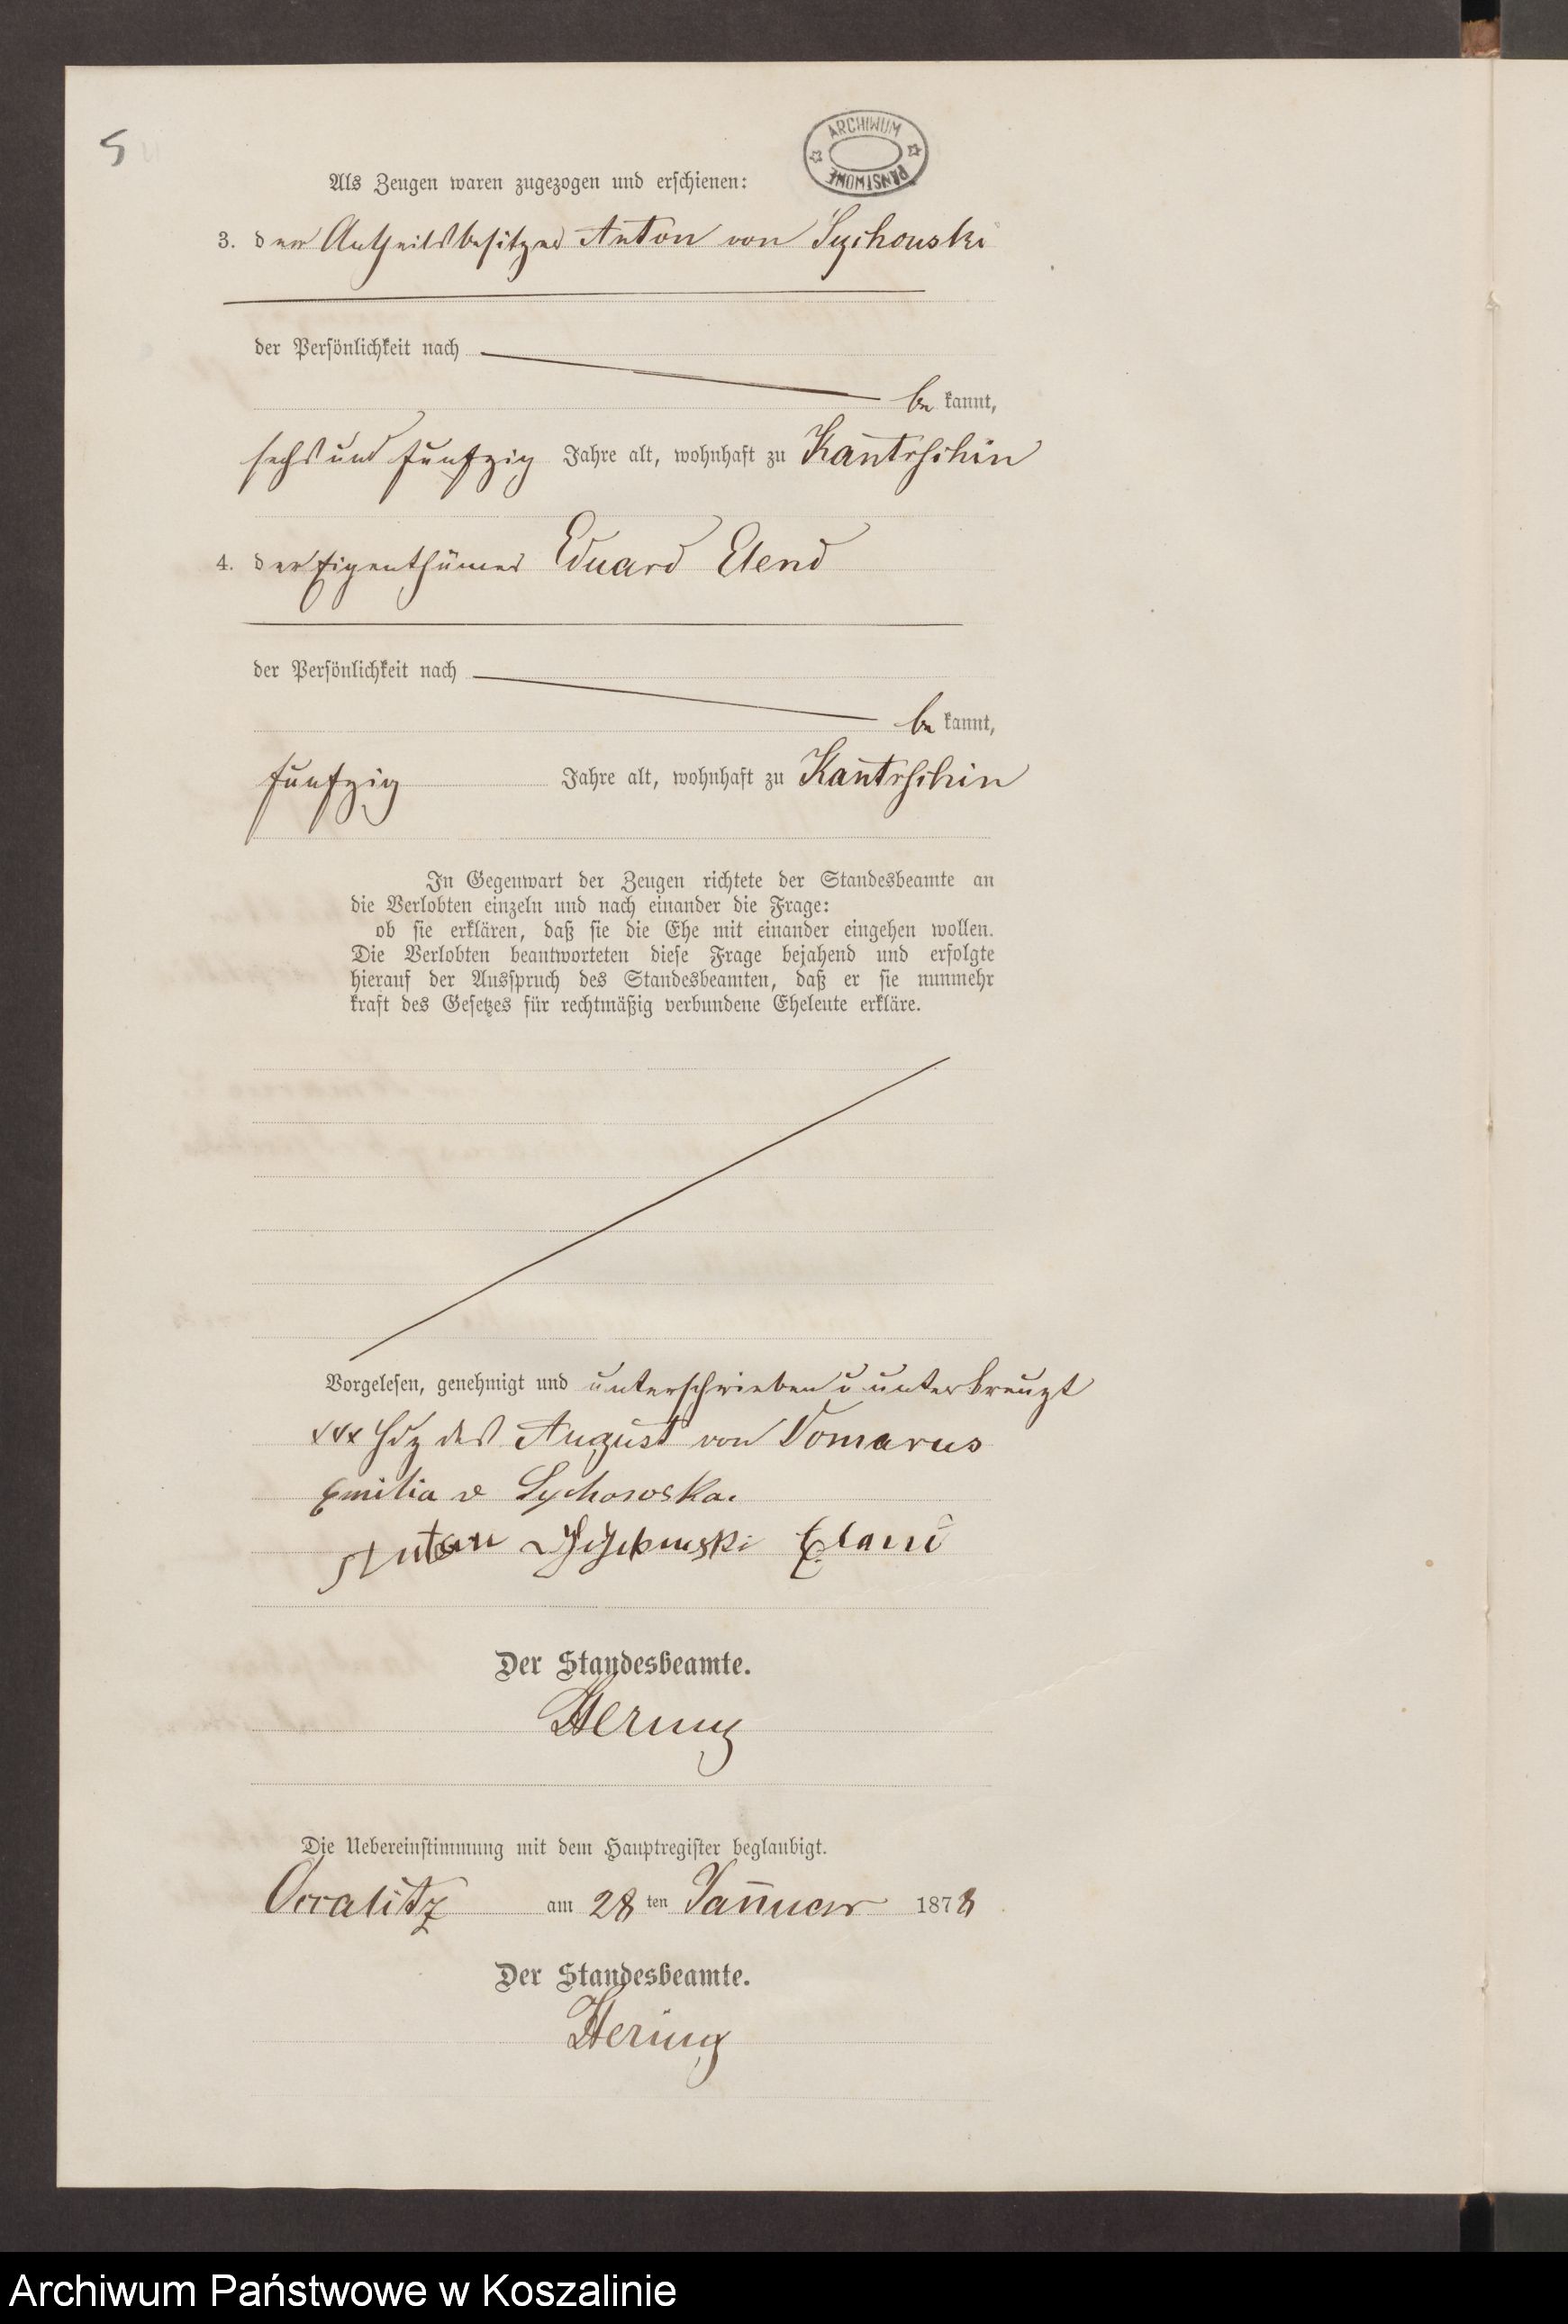 5
ARCHIWUM PAŃSTWOWE
Als Zeugen waren zugezogen und erschienen:
3. der Antheilsbesitzer Anton von Sychouski
der Persönlichkeit nach
be kannt,
sechs und funfzig Jahre alt, wohnhaft zu Kantrschin
4. der Eigenthümer Eduard Elend
der Persönlichkeit nach
be kannt,
funfzig Jahre alt, wohnhaft zu Kantrschin
In Gegenwart der Zeugen richtete der Standesbeamte an
die Verlobten einzeln und nach einander die Frage:
ob sie erklären, daß sie die Ehe mit einander eingehen wollen.
Die Verlobten beantworteten diese Frage bejahend und erfolgte
hierauf der Ausspruch des Standesbeamten, daß er sie nunmehr
kraft des Gesetzes für rechtmäßig verbundene Eheleute erkläre.
Vorgelesen, genehmigt und unterschrieben u unterkreuzt
xxx Hdz des August von Domarus
Emilia v Sychowska.
Anton E.
Der Standesbeamte.
Hering
Die Uebereinstimmung mit dem Hauptregister beglaubigt.
Occalitz am 28 ten Januar 1878
Der Standesbeamte.
Hering
Archiwum Państwowe w Koszalinie